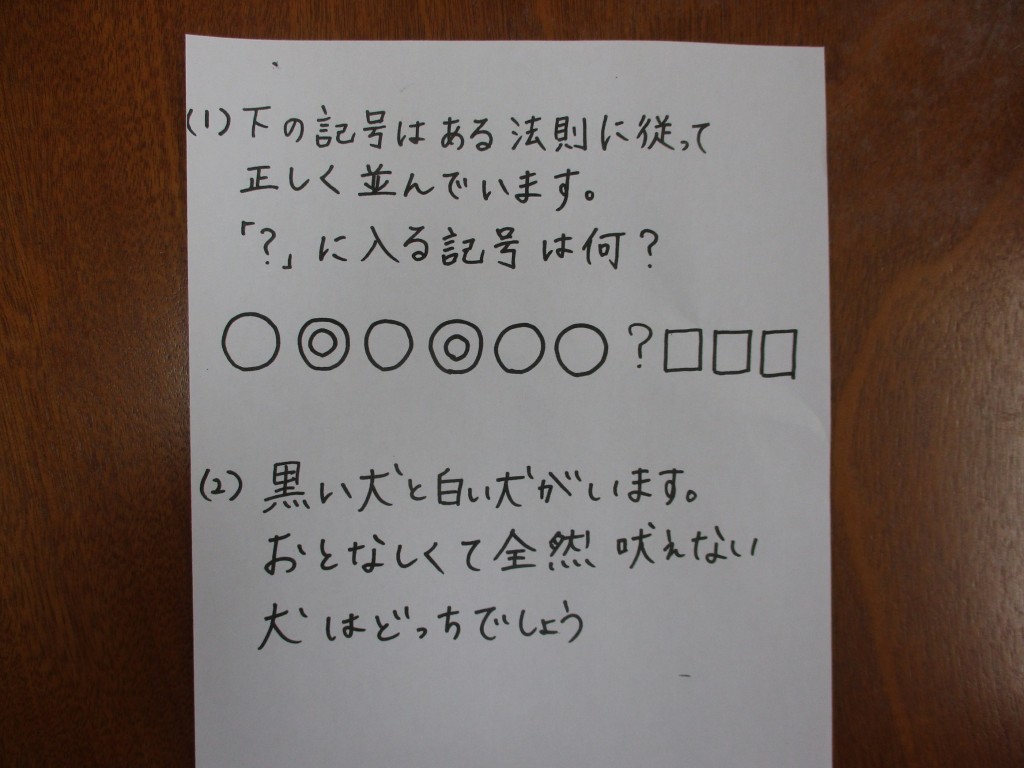 (1) 下の記号はある法則に従って
正しく並んでいます。
「?」に入る記号は何?
○ ◎ ○ ◎ ○ ○ ? □ □ □
(2) 黒い犬と白い犬がいます。
おとなしくて全然吠えない
犬はどっちでしょう